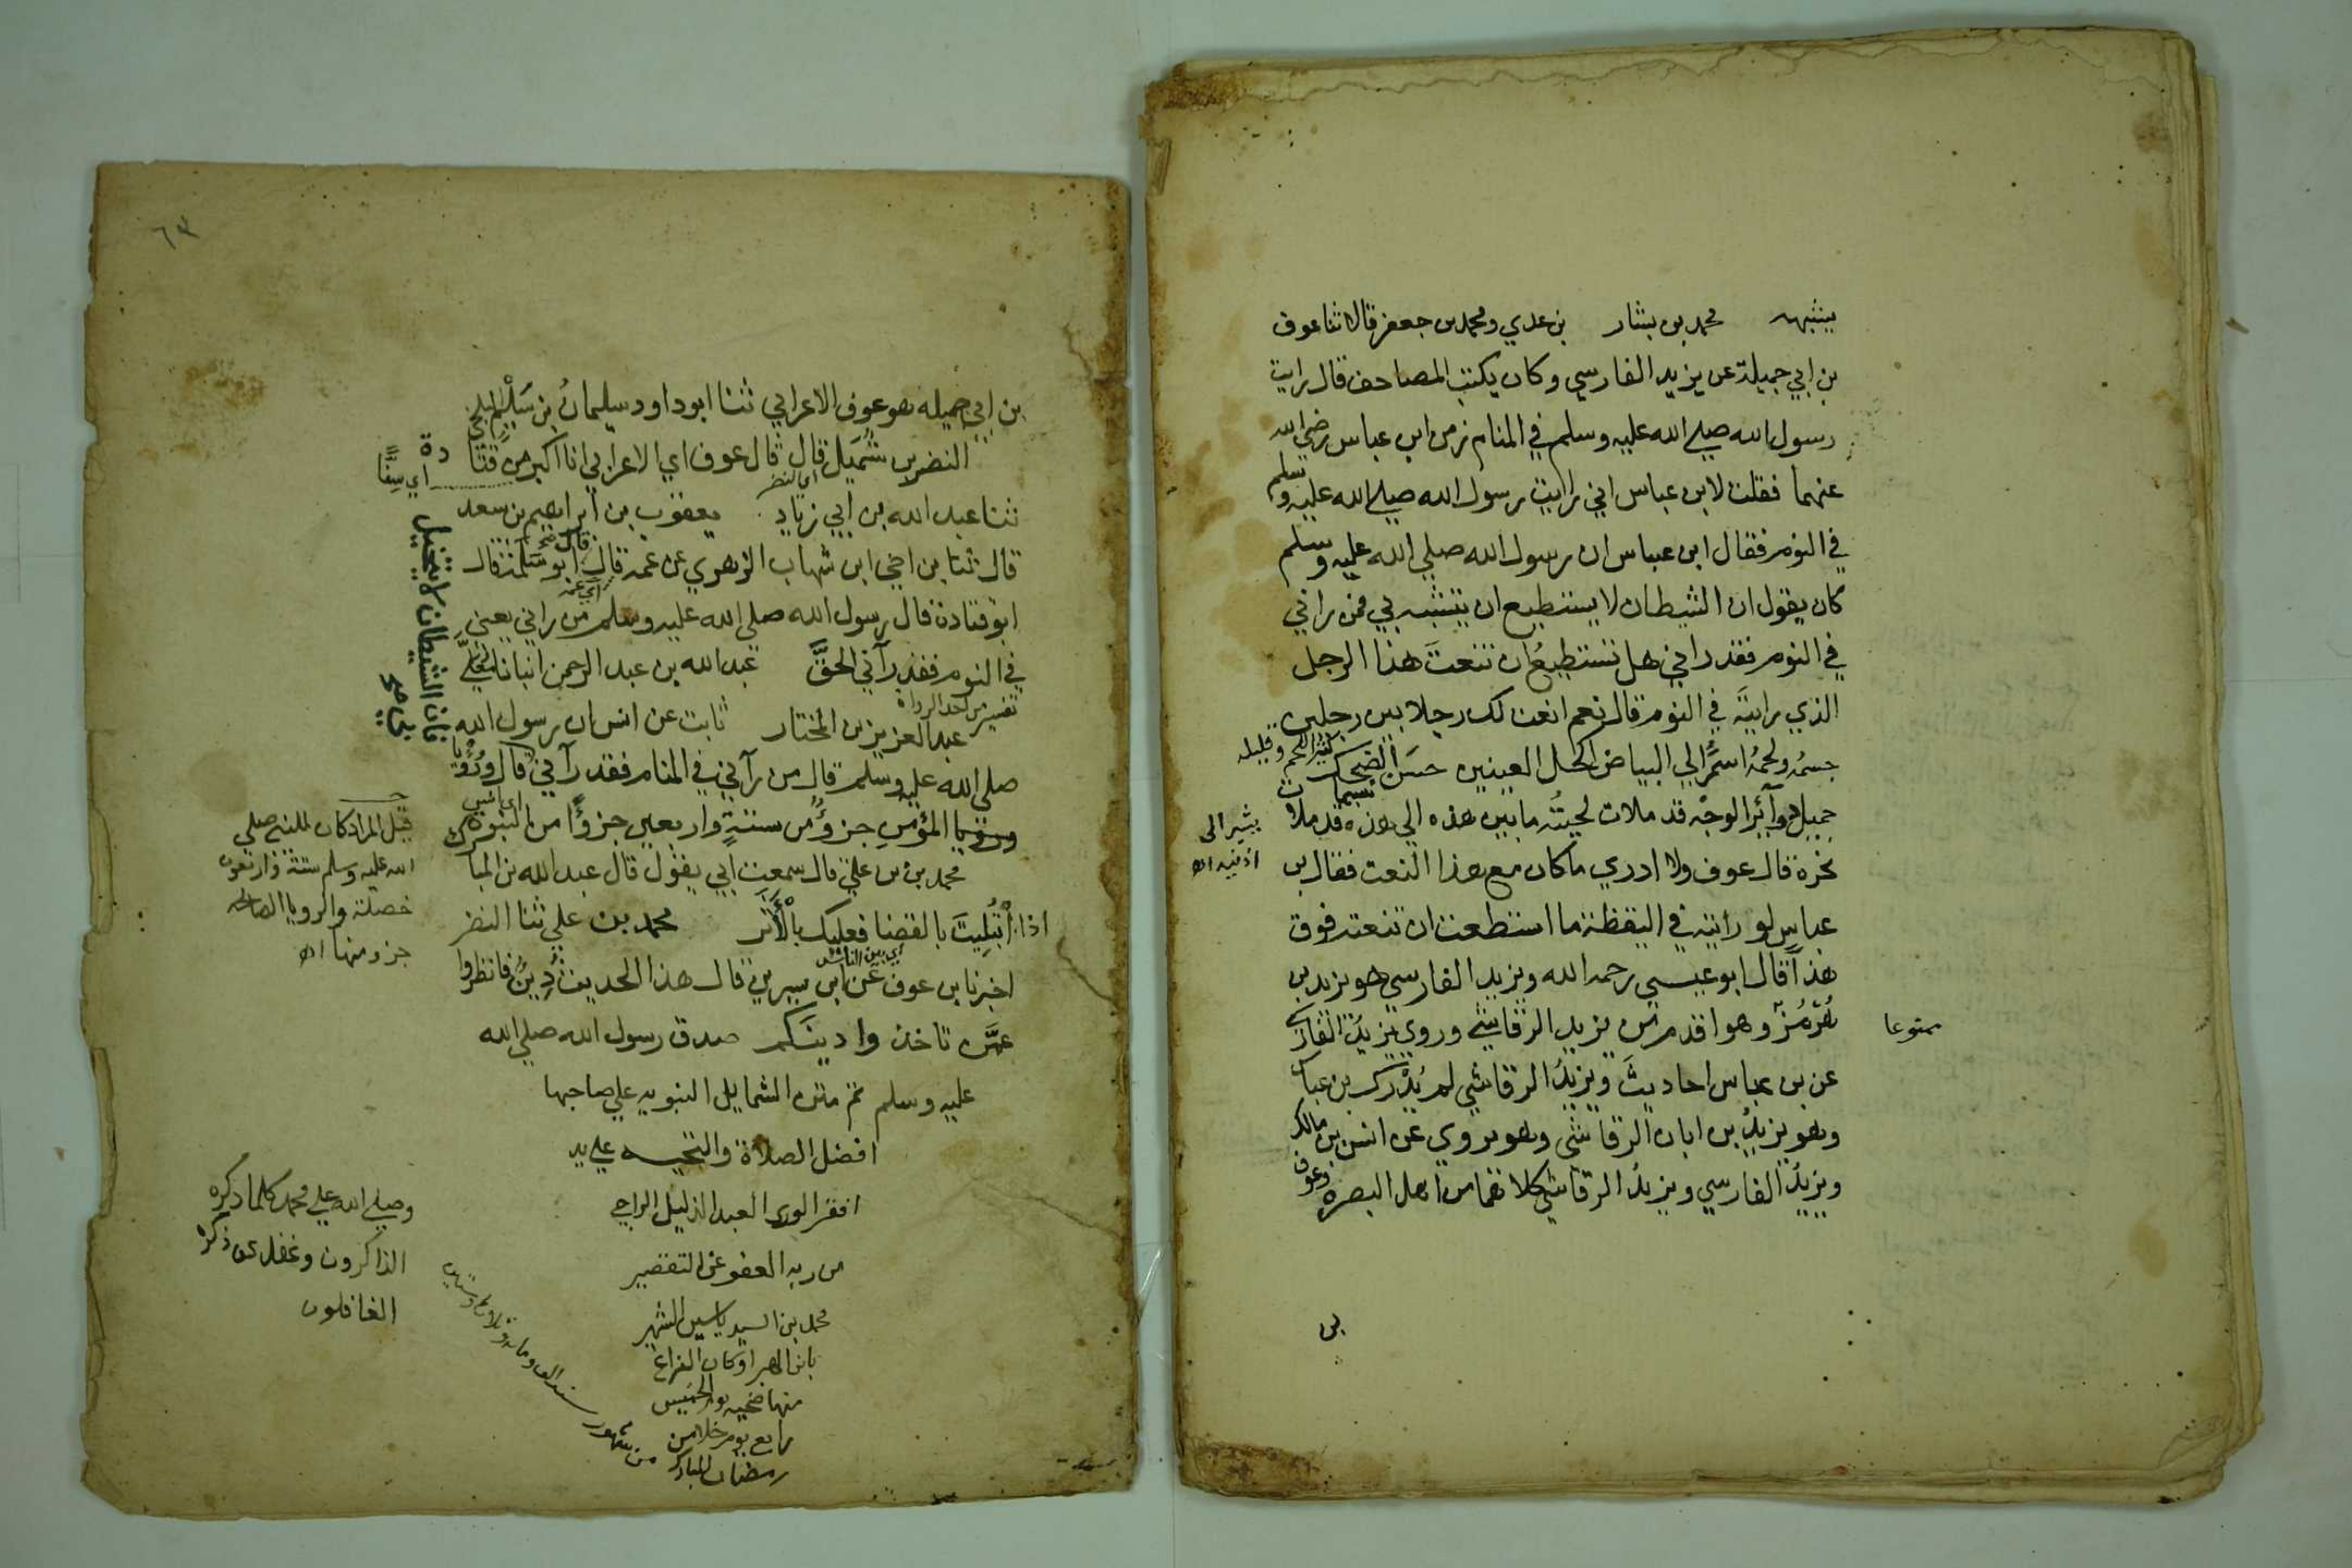 يتشبه محمد بن بشار بن عدي ومحمد بن جعفر قالا ثنا عوف
بن ابي جميلة عن يزيد الفارسي وكان يكتب المصاحف قال رايت
رسول الله صلي الله عليه وسلم في المنام زمن ابن عباس رضي الله
عنهما فقلت لابن عباس اني رايت رسول الله صلي الله عليه وسلم
في النوم فقال ابن عباس ان رسول الله صلي الله عليه وسلم
كان يقول ان الشيطان لا يستطيع ان يتشبه بي فمن راني
في النوم فقد راني هل تستطيعُ ان تنعتَ هذا الرجل
الذي رايتَه في النوم قال نعم انعت لك رجلا بين رجلين
كثير اللحم وقليله
جسمُه ولحمُه اسمَرُ الي البياض اكحل العينين حسَن الضحك
تبسما
جميل دوآئرالوجْه قد ملات لحيتُه ما بين هذه الي هذه قد ملات
يشير الى
اذنيه اه
نحره قال عوف ولا ادري ما كان مع هذا النعت فقال بن
عباسٍ لو رايته في اليقظة ما استطعت ان تنعته فوق
هذا قال ابو عيسي رحمه الله ويزيد الفارسي هو يزيد بن
هُرْمُزَ وهو اقدم من يزيد الرقاشي وروي يزيدُ الفارسي
ممنوعا
عن بن عباس احاديثَ ويزيدُ الرقاشي لم يُدْرك بن عباس
وهو يزيدُ بن ابان الرقاشي وهو يروي عن انس بن مالك
ويزيدُ الفارسي ويزيدُ الرقاشي كلاهما من اهل البصره وعوف
بن
٦٣
بن ابي جميله هو عوف الاعرابي ثنا ابو داود سليمانُ بن سَلْم البلخي
النضر بن شُمَيل قال قال عوف اي الاعرابي انا اكبر من قتا دة
اي سِنًّا
اي النضر
ثنا عبد الله بن ابي زياد يعقوب بن ابراهيم بن سعد
قال ثنا بن اخي ابن شهاب الزهري عن عمه قال قال ابو سَلَمة قال
اي عمه
ابو قتادة قال رسول الله صلي الله عليه وسلم من راني يعني
في النوم فقد رآني الحقَّ عبد الله بن عبد الرحمن انبانا المعلَّي
تفسير من احد الرواه
عبد العزيز بن المختار ثابت عن انس ان رسول الله
فان الشيطان لا يتخيل
بي صح
صلي الله عليه وسلم قال من رآني في المنام فقد رآني قال ورُؤيا
المؤمن جزؤٌ من ستةٍ واربعين جزؤًا من النبوة
محمد بن علي قال سمعت ابي يقول قال عبد الله بن المبا رك
اذا ابْتُلِيتَ بالقضا فعليك بالْأَثر محمد بن علي ثنا النضر
اي بين الناس
اخبرنا بن عوف عن ابن سيرين قال هذا الحديث دِينٌ فانظروا
عمَّن تاخذوا دينَكم صدق رسول الله صلي الله
عليه وسلم تم متن الشمايل النبويه علي صاحبها
افضل الصلاة والتحيه علي يد
افقر الوري العبد الذليل الراجي
من ربه العفو عن التقصير
محمد بن السيد ياسين الشهير
وكان الفراغ
منها ضحيه يوم الخميس
رابع يوم خلا من
رمضان المبارك من شهور
قيل المراد كان للنبي صلي
الله عليه وسلم ستة واربعون
خصلة والرويا الصالحه
جزو منها اه
وصلي الله علي محمد كلما ذكره
الذاكرون وغفل عن ذكره
الغافلون